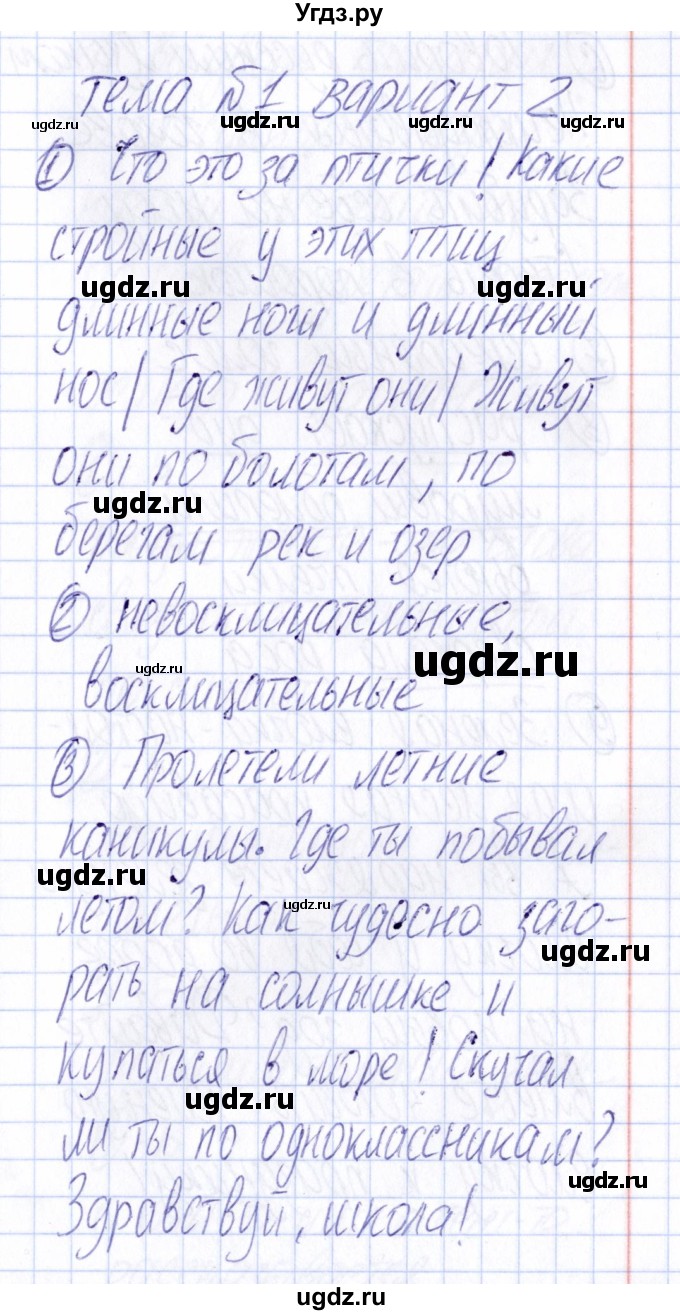 Угдз.ру
тема №1 вариант 2
ugdz.ru ugdz.ru ugdz.ru ugdz.ru
① Что это за птички! Какие
стройные у этих птиц
ugdz.ru ugdz.ru
длинные ноги и длинный
нос| Где живут они| Живут
они по болотам, по
ugdz.ru
берегам рек и озер
② невосклицательные,
ugdz.ru ugdz.ru
восклицательные
③ Пролетели летние
каникулы. Где ты побывал
ugdz.ru
летом? Как чудесно заго-
ugdz.ru ugdz.ru
рать на солнышке и
купаться в море! Скучал
ugdz.ru
ли ты по одноклассникам?
ugdz.ru
Здравствуй, школа!
ugdz.ru